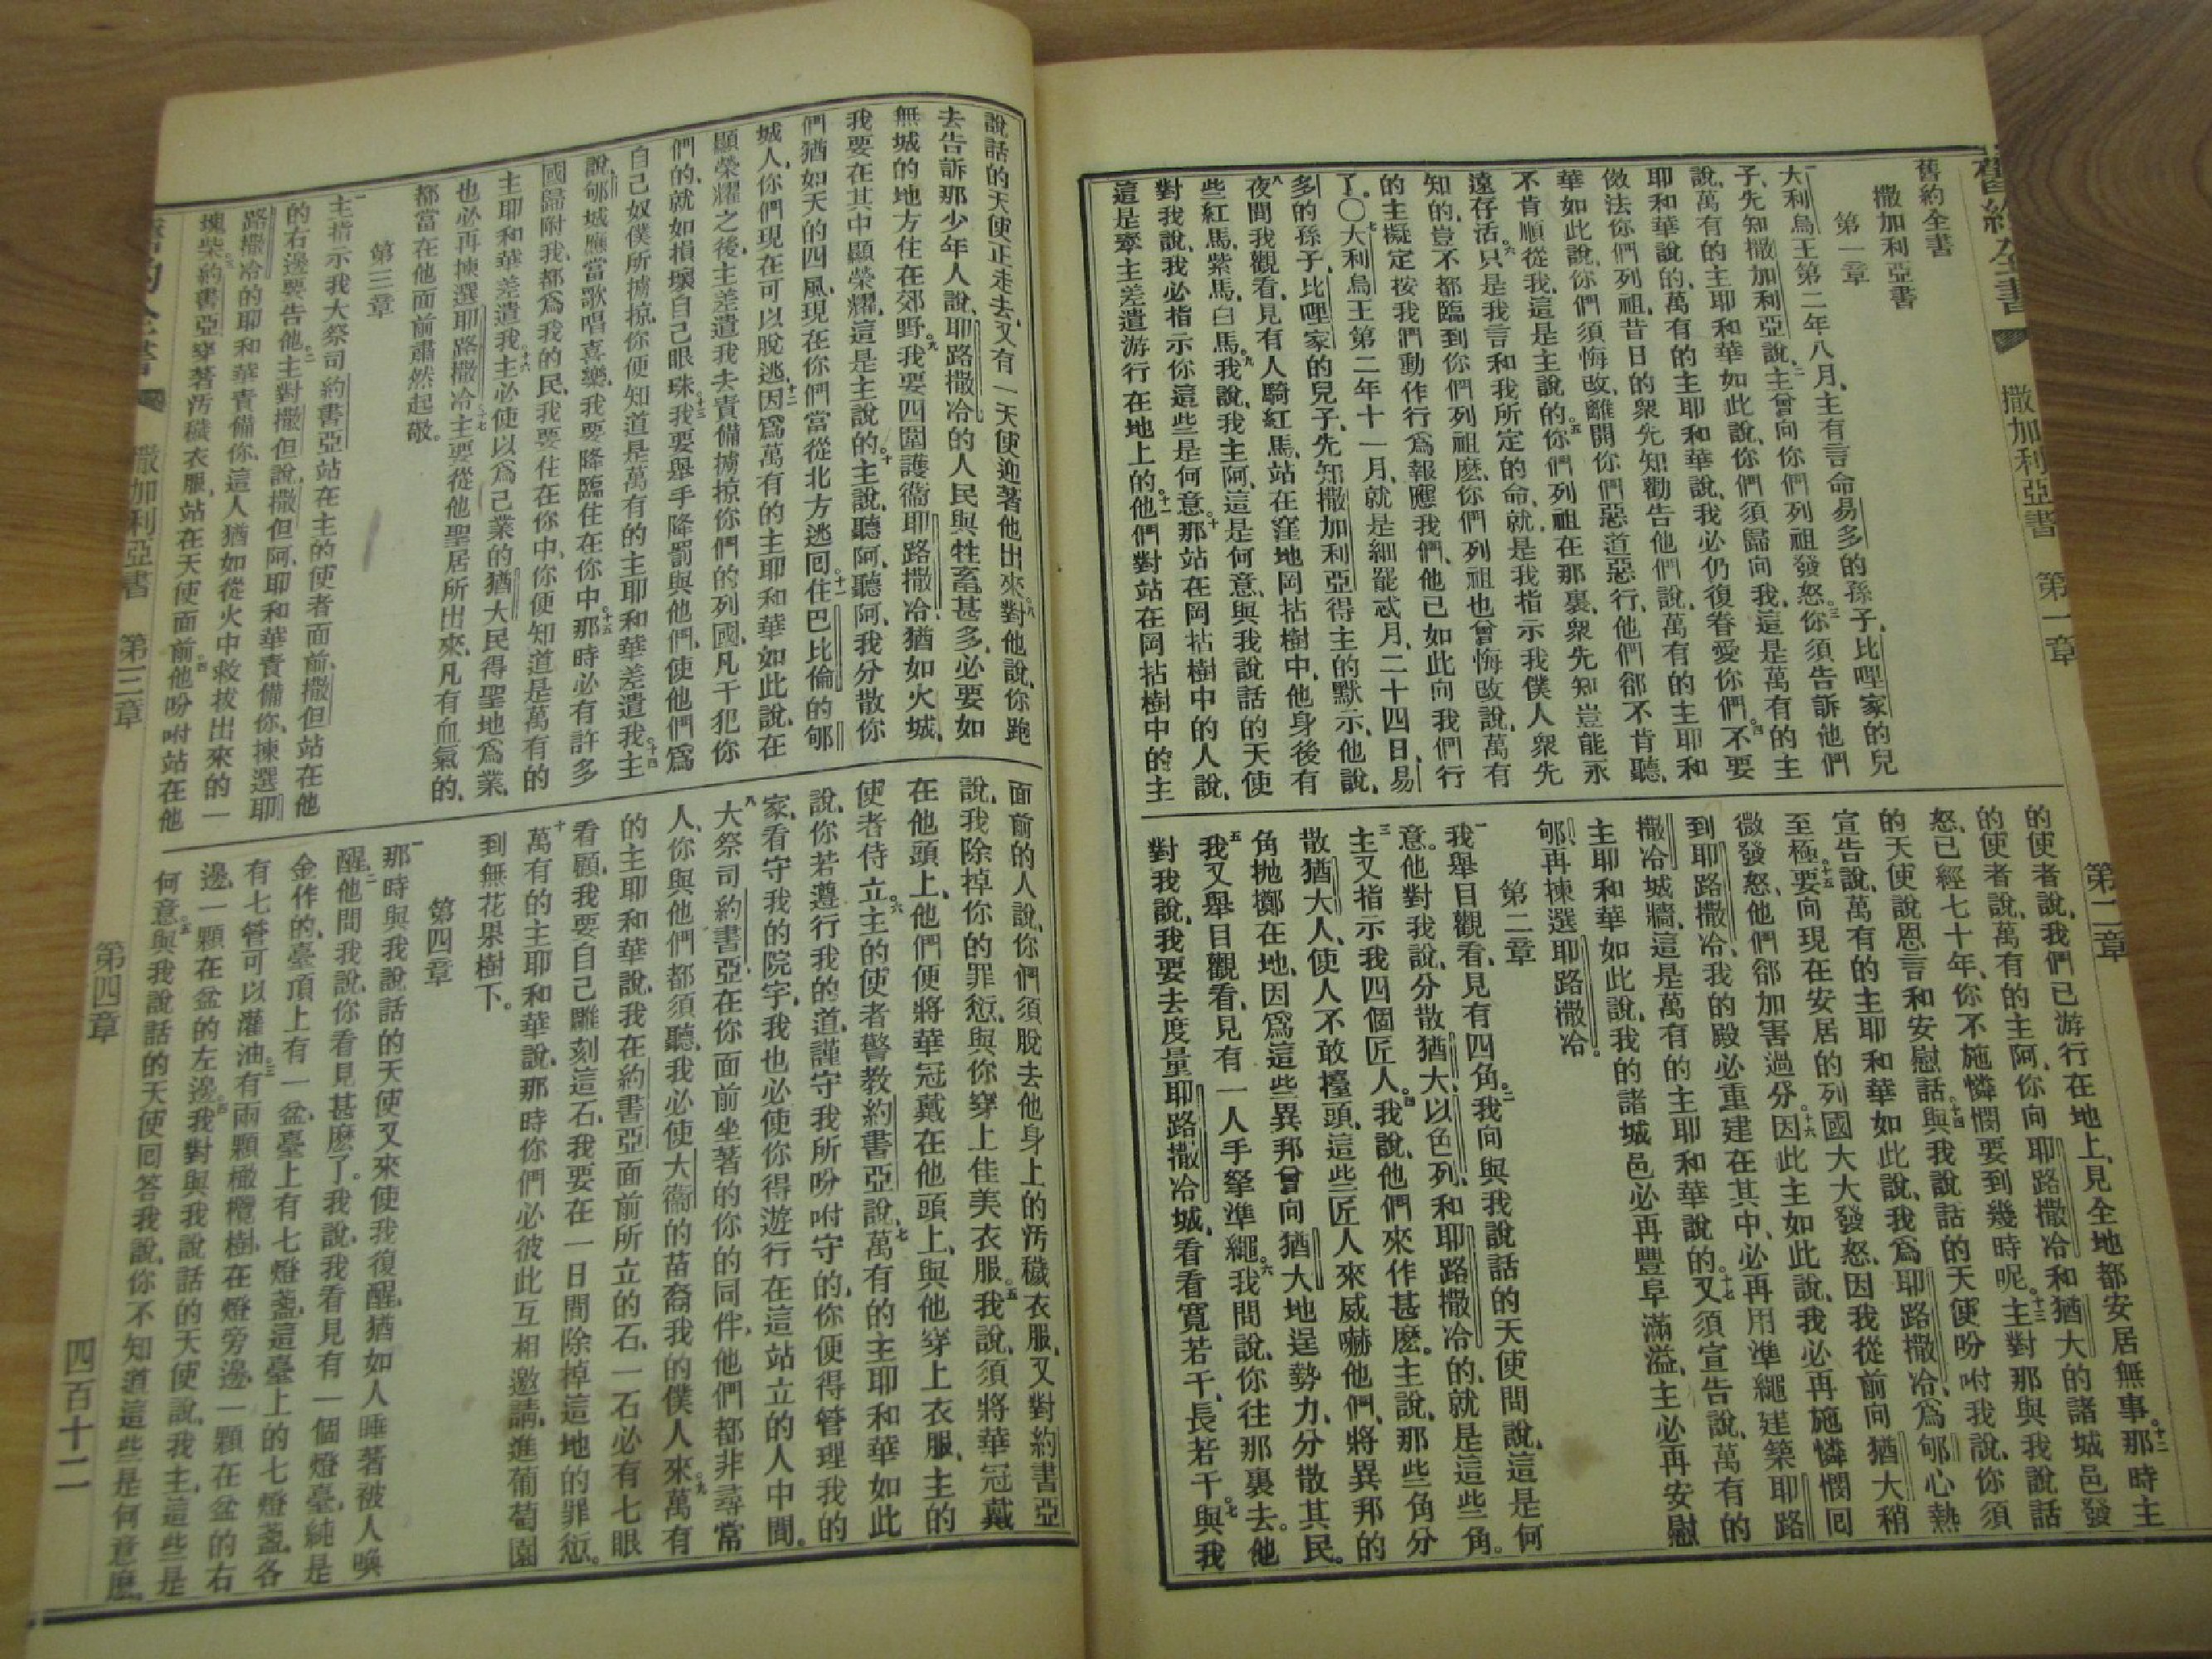 舊約全書
撒加利亞書
第一章
大利烏王第二年八月、主有言命易多的孫子、比哩家的兒
子、先知撒加利亞說、二主曾向你們列祖發怒、三你須告訴他們
說、萬有的主耶和華如此說、你們須歸向我、這是萬有的主
耶和華說的、萬有的主耶和華說、我必仍復眷愛你們。四不要
傚法你們列祖、昔日的衆先知勸告他們說、萬有的主耶和
華如此說、你們須悔改、離開你們惡道惡行、他們卻不肯聽、
不肯順從我、這是主說的。五你們列祖在那裏、衆先知豈能永
遠存活、六只是我言和我所定的命、就是我指示我僕人衆先
知的、豈不都臨到你們列祖麽、你們列祖也曾悔改說、萬有
的主擬定按我們動作行爲報應我們、他已如此向我們行
了。〇七大利烏王第二年十一月、就是細罷忒月、二十四日、易
多的孫子、比哩家的兒子、先知撒加利亞得主的默示、他說、
八夜間我觀看、見有人騎紅馬、站在窪地岡拈樹中、他身後有
些紅馬、紫馬、白馬。九我說、我主阿、這是何意、與我說話的天使
對我說、我必指示你這些是何意。十那站在岡拈樹中的人說、
這是奉主差遣游行在地上的。十一他們對站在岡拈樹中的主
的使者說、我們已游行在地上、見全地都安居無事。十二那時主
的使者說、萬有的主阿、你向耶路撒冷和猶大的諸城邑發
怒、已經七十年、你不施憐憫要到幾時呢。十三主對那與我說話
的天使說恩言和安慰話。十四與我說話的天使吩咐我說、你須
宣告說、萬有的主耶和華如此說、我爲耶路撒冷、爲郇心熱
至極。十五要向現在安居的列國大大發怒、因我從前向猶大稍
微發怒、他們卻加害過分。十六因此主如此說、我必再施憐憫回
到耶路撒冷、我的殿必重建在其中、必再用準繩建築耶路
撒冷城牆、這是萬有的主耶和華說的。十七又須宣告說、萬有的
主耶和華如此說、我的諸城邑必再豐阜滿溢、主必再安慰
郇、再揀選耶路撒冷。
第二章
一我舉目觀看、見有四角。二我向與我說話的天使問說、這是何
意。他對我說、分散猶大、以色列、和耶路撒冷的、就是這些角。
三主又指示我四個匠人。四我說、他們來作甚麽。主說、那些角分
散猶大人、使人不敢擡頭、這些匠人來威嚇他們、將異邦的
角抛擲在地、因爲這些異邦曾向猶大地逞勢力、分散其民。
五我又舉目觀看、見有一人手拏準繩。六我問說、你往那裏去。他
對我說、我要去度量耶路撒冷城、看看寬若干、長若干。七與我
說話的天使正走去、又有一天使迎著他出來。八對他說、你跑
去告訴那少年人說、耶路撒冷的人民與牲畜甚多、必要如
無城的地方住在郊野。九我要四圍護衛耶路撒冷、猶如火城、
我要在其中顯榮耀、這是主說的。十主說、聽阿、聽阿、我分散你
們猶如天的四風、現在你們當從北方逃回。十一住巴比倫的郇
城人、你們現在可以脫逃。十二因爲萬有的主耶和華如此說、在
顯榮耀之後、主差遣我去責備擄掠你們的列國、凡干犯你
們的、就如損壞自己眼珠。十三我要舉手降罰與他們、使他們爲
自己奴僕所擄掠、你便知道是萬有的主耶和華差遣我。十四主
說、郇城應當歌唱喜樂、我要降臨住在你中。十五那時必有許多
國歸附我、都爲我的民、我要住在你中、你便知道是萬有的
主耶和華差遣我。十六主必使以爲己業的猶大民得聖地爲業、
也必再揀選耶路撒冷。十七主要從他聖居所出來、凡有血氣的、
都當在他面前肅然起敬。
第三章
一主指示我大祭司約書亞站在主的使者面前、撒但站在他
的右邊要告他。二主對撒但說、撒但阿、耶和華責備你、揀選耶
路撒冷的耶和華責備你、這人猶如從火中救拔出來的一
塊柴。三約書亞穿著污穢衣服、站在天使面前。四他吩咐站在他
面前的人說、你們須脫去他身上的污穢衣服、又對約書亞
說、我除掉你的罪愆、與你穿上佳美衣服。五我說、須將華冠戴
在他頭上、他們便將華冠戴在他頭上、與他穿上衣服、主的
使者侍立。六主的使者警教約書亞說、七萬有的主耶和華如此
說、你若遵行我的道、謹守我所吩咐守的、你便得管理我的
家、看守我的院宇、我也必使你得遊行在這站立的人中間。
八大祭司約書亞在你面前坐著的你的同伴、他們都非尋常
人、你與他們都須聽、我必使大衞的苗裔我的僕人來。九萬有
的主耶和華說、我在約書亞面前所立的石、一石必有七眼
看顧、我要自己雕刻這石、我要在一日間除掉這地的罪愆。
十萬有的主耶和華說、那時你們必彼此互相邀請、進葡萄園
到無花果樹下。
第四章
一那時與我說話的天使又來使我復醒、猶如人睡著被人喚
醒。二他問我說、你看見甚麽了。我說、我看見有一個燈臺、純是
金作的、臺頂上有一盆、臺上有七燈盞、這臺上的七燈盞、各
有七管可以灌油。三有兩顆橄欖樹、在燈旁邊、一顆在盆的右
邊、一顆在盆的左邊。四我對與我說話的天使說、我主、這些是
何意。五與我說話的天使回答我說、你不知道這些是何意麽。
舊約全書 撒加利亞書 第一章 第二章
舊約全書 撒加利亞書 第三章 第四章 四百十二